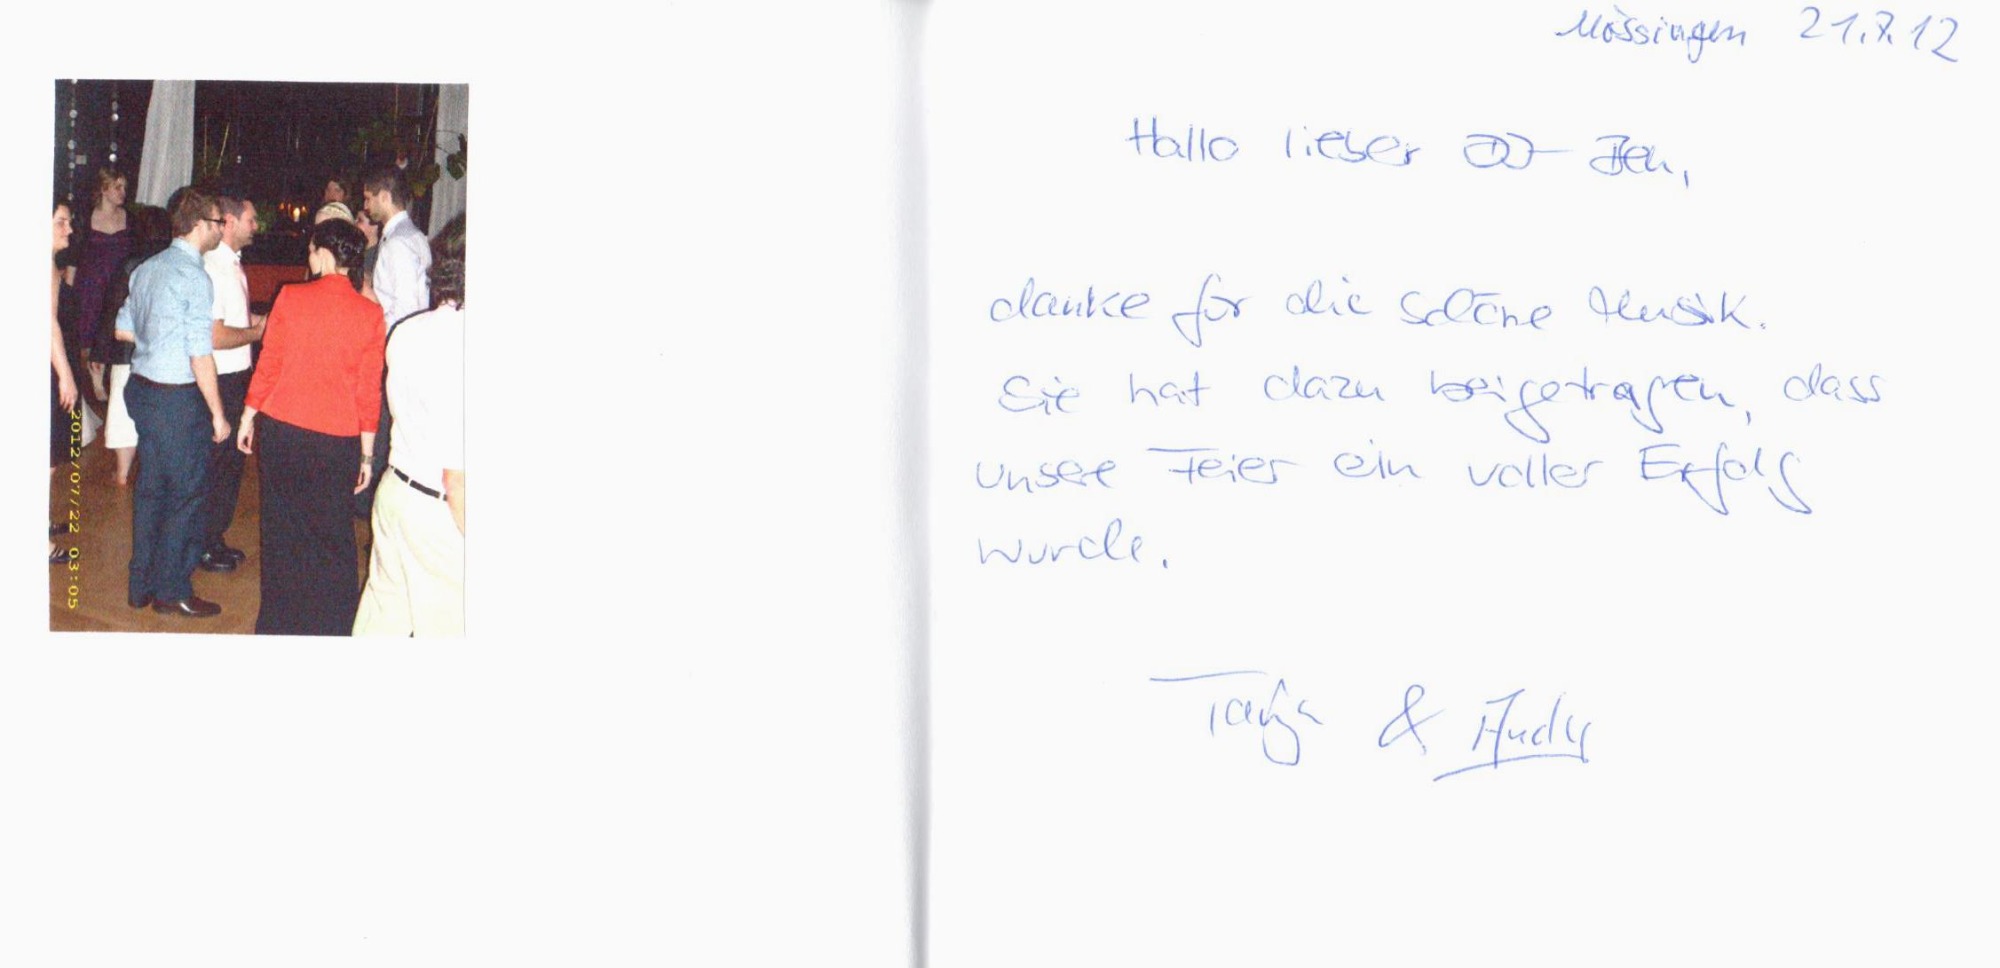 2012/07/22 03:05
Mössingen 21.7.12
Hallo lieber DJ Ben,
danke für die schöne Musik.
Sie hat dazu beigetragen, dass
unsere Feier ein voller Erfolg
wurde.
Tanja & Andy